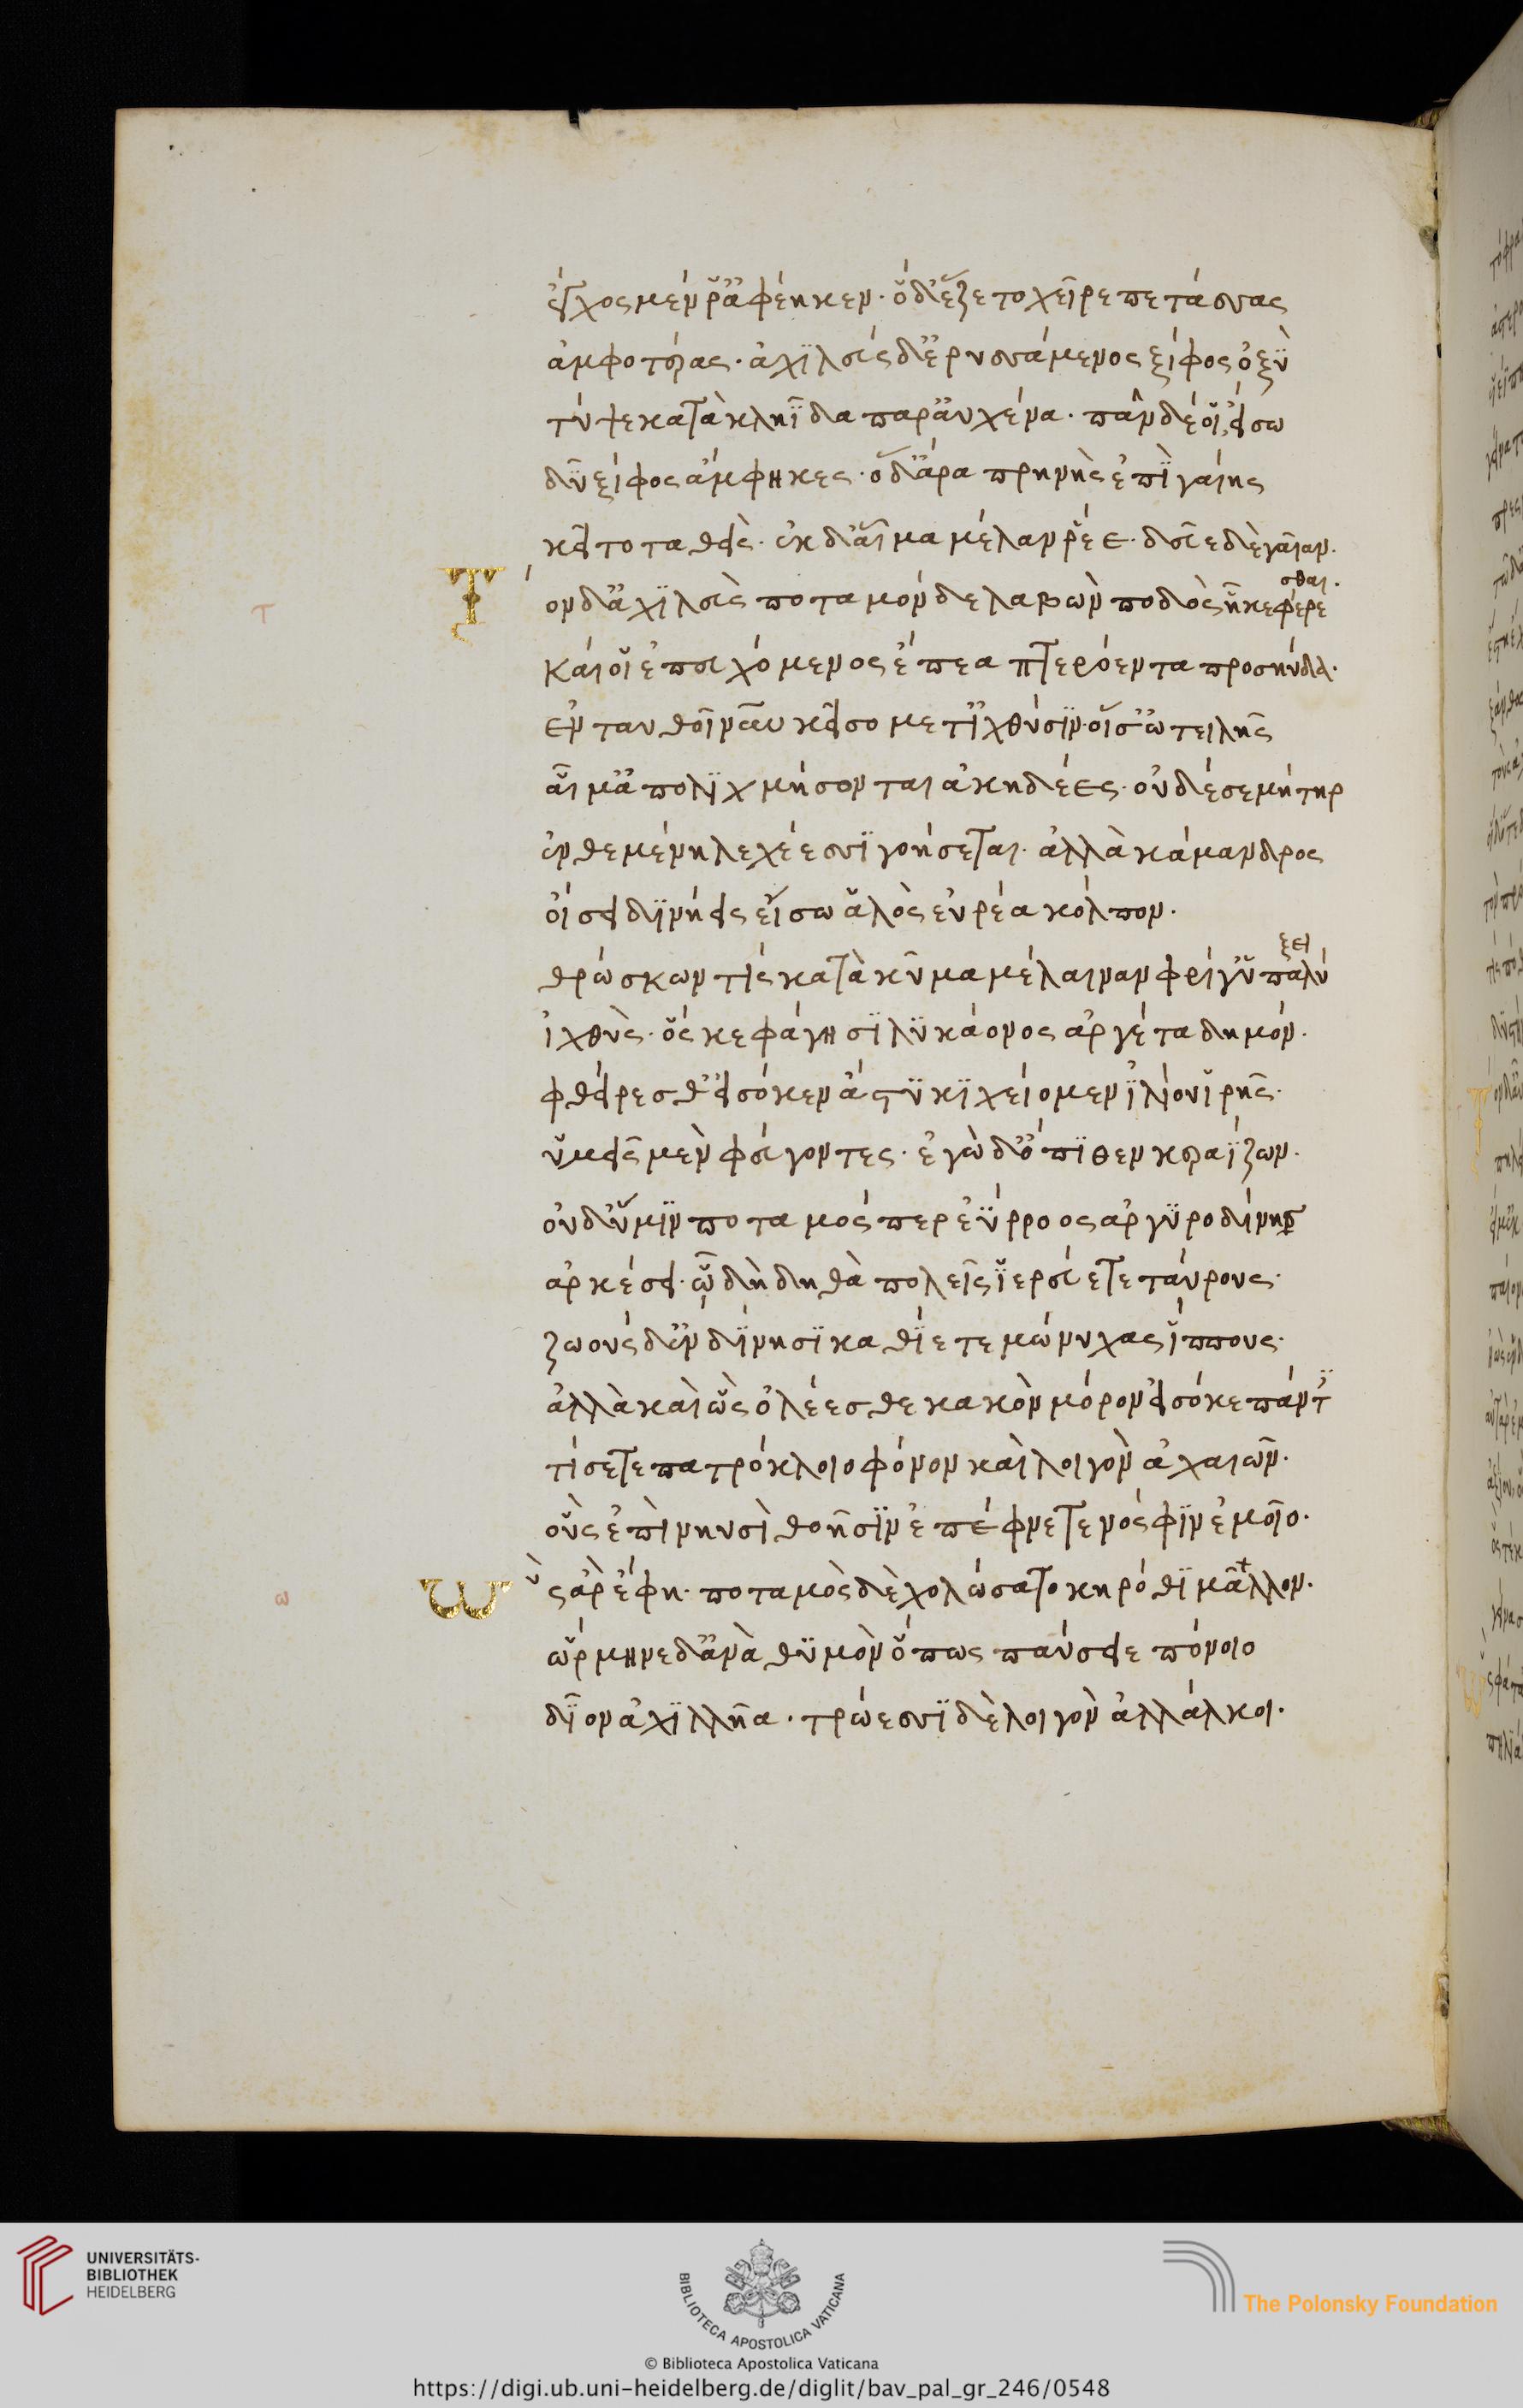 ἔγχος μέν ῥ' ἀφέηκεν· ὁ δ' ἕζετο χεῖρε πετάσσας
ἀμφοτέρας· ἀχιλεὺς δὲ ἐρυσσάμενος ξίφος ὀξὺ
τύψε κατὰ κληῗδα παρ' αὐχένα· πᾶν δέ οἱ εἴσω
δῦ ξίφος ἄμφηκες· ὁ δ' ἄρα πρηνὴς ἐπὶ γαίης
κεῖτο ταθείς· ἐκ δ' αἷμα μέλαν ῥέε· δεῦε δὲ γαῖαν.
Τὸν δ' ἀχιλεὺς ποταμόνδε λαβὼν ποδὸς ἧκε φέρεσθαι.
καί οἱ ἐπευχόμενος ἔπεα πτερόεντα προσηύδα.
ἐνταυθοῖ νῦν κεῖσο μετ' ἰχθύσιν· οἵ σ' ὠτειλῆς
αἷμ' ἀπολιχμήσονται ἀκηδέες· οὐδέ σε μήτηρ
ἐνθεμένη λεχέεσσι γοήσεται· ἀλλὰ σκάμανδρος
οἴσει δινήεις εἴσω ἁλὸς εὐρέα κόλπον.
θρώσκων τὶς κατὰ κῦμα μέλαιναν φρίχ' ὑπαλύξει
ἰχθὺς· ὅς κε φάγησι λυκάονος ἀργέτα δημόν.
φθείρεσθ' εἰσόκεν ἄστυ κιχείομεν ἰλίου ἱρῆς.
ὑμεῖς μὲν φεύγοντες· ἐγὼ δ' ὄπιθεν κεραΐζων.
οὐδ' ὑμῖν ποταμός περ ἐύρροος ἀργυροδίνης
ἀρκέσει· ὧ δὴ δηθὰ πολεῖς ἱερεύετε ταύρους.
ζωοὺς δ' ἐν δίνησι καθίετε μώνυχας ἵππους.
ἀλλὰ καὶ ὣς ὀλέεσθε κακὸν μόρον εἰσόκε πάντες
τίσετε πατρόκλοιο φόνον καὶ λοιγὸν ἀχαιῶν.
οὓς ἐπὶ νηυσὶ θοῇσιν ἐπέφνετε νόσφιν ἐμοῖο.
Ὣς ἄρ' ἔφη· ποταμὸς δὲ χολώσατο κηρόθι μᾶλλον.
ὥρμηνε δ' ἀνὰ θυμὸν ὅπως παύσειε πόνοιο
δῖον ἀχιλλῆα· τρώεσσι δὲ λοιγὸν ἀλλάλκοι.
τ
ω
UNIVERSITÄTS-
BIBLIOTHEK
HEIDELBERG
BIBLIOTECA APOSTOLICA VATICANA
The Polonsky Foundation
© Biblioteca Apostolica Vaticana
https://digi.ub.uni-heidelberg.de/diglit/bav_pal_gr_246/0548